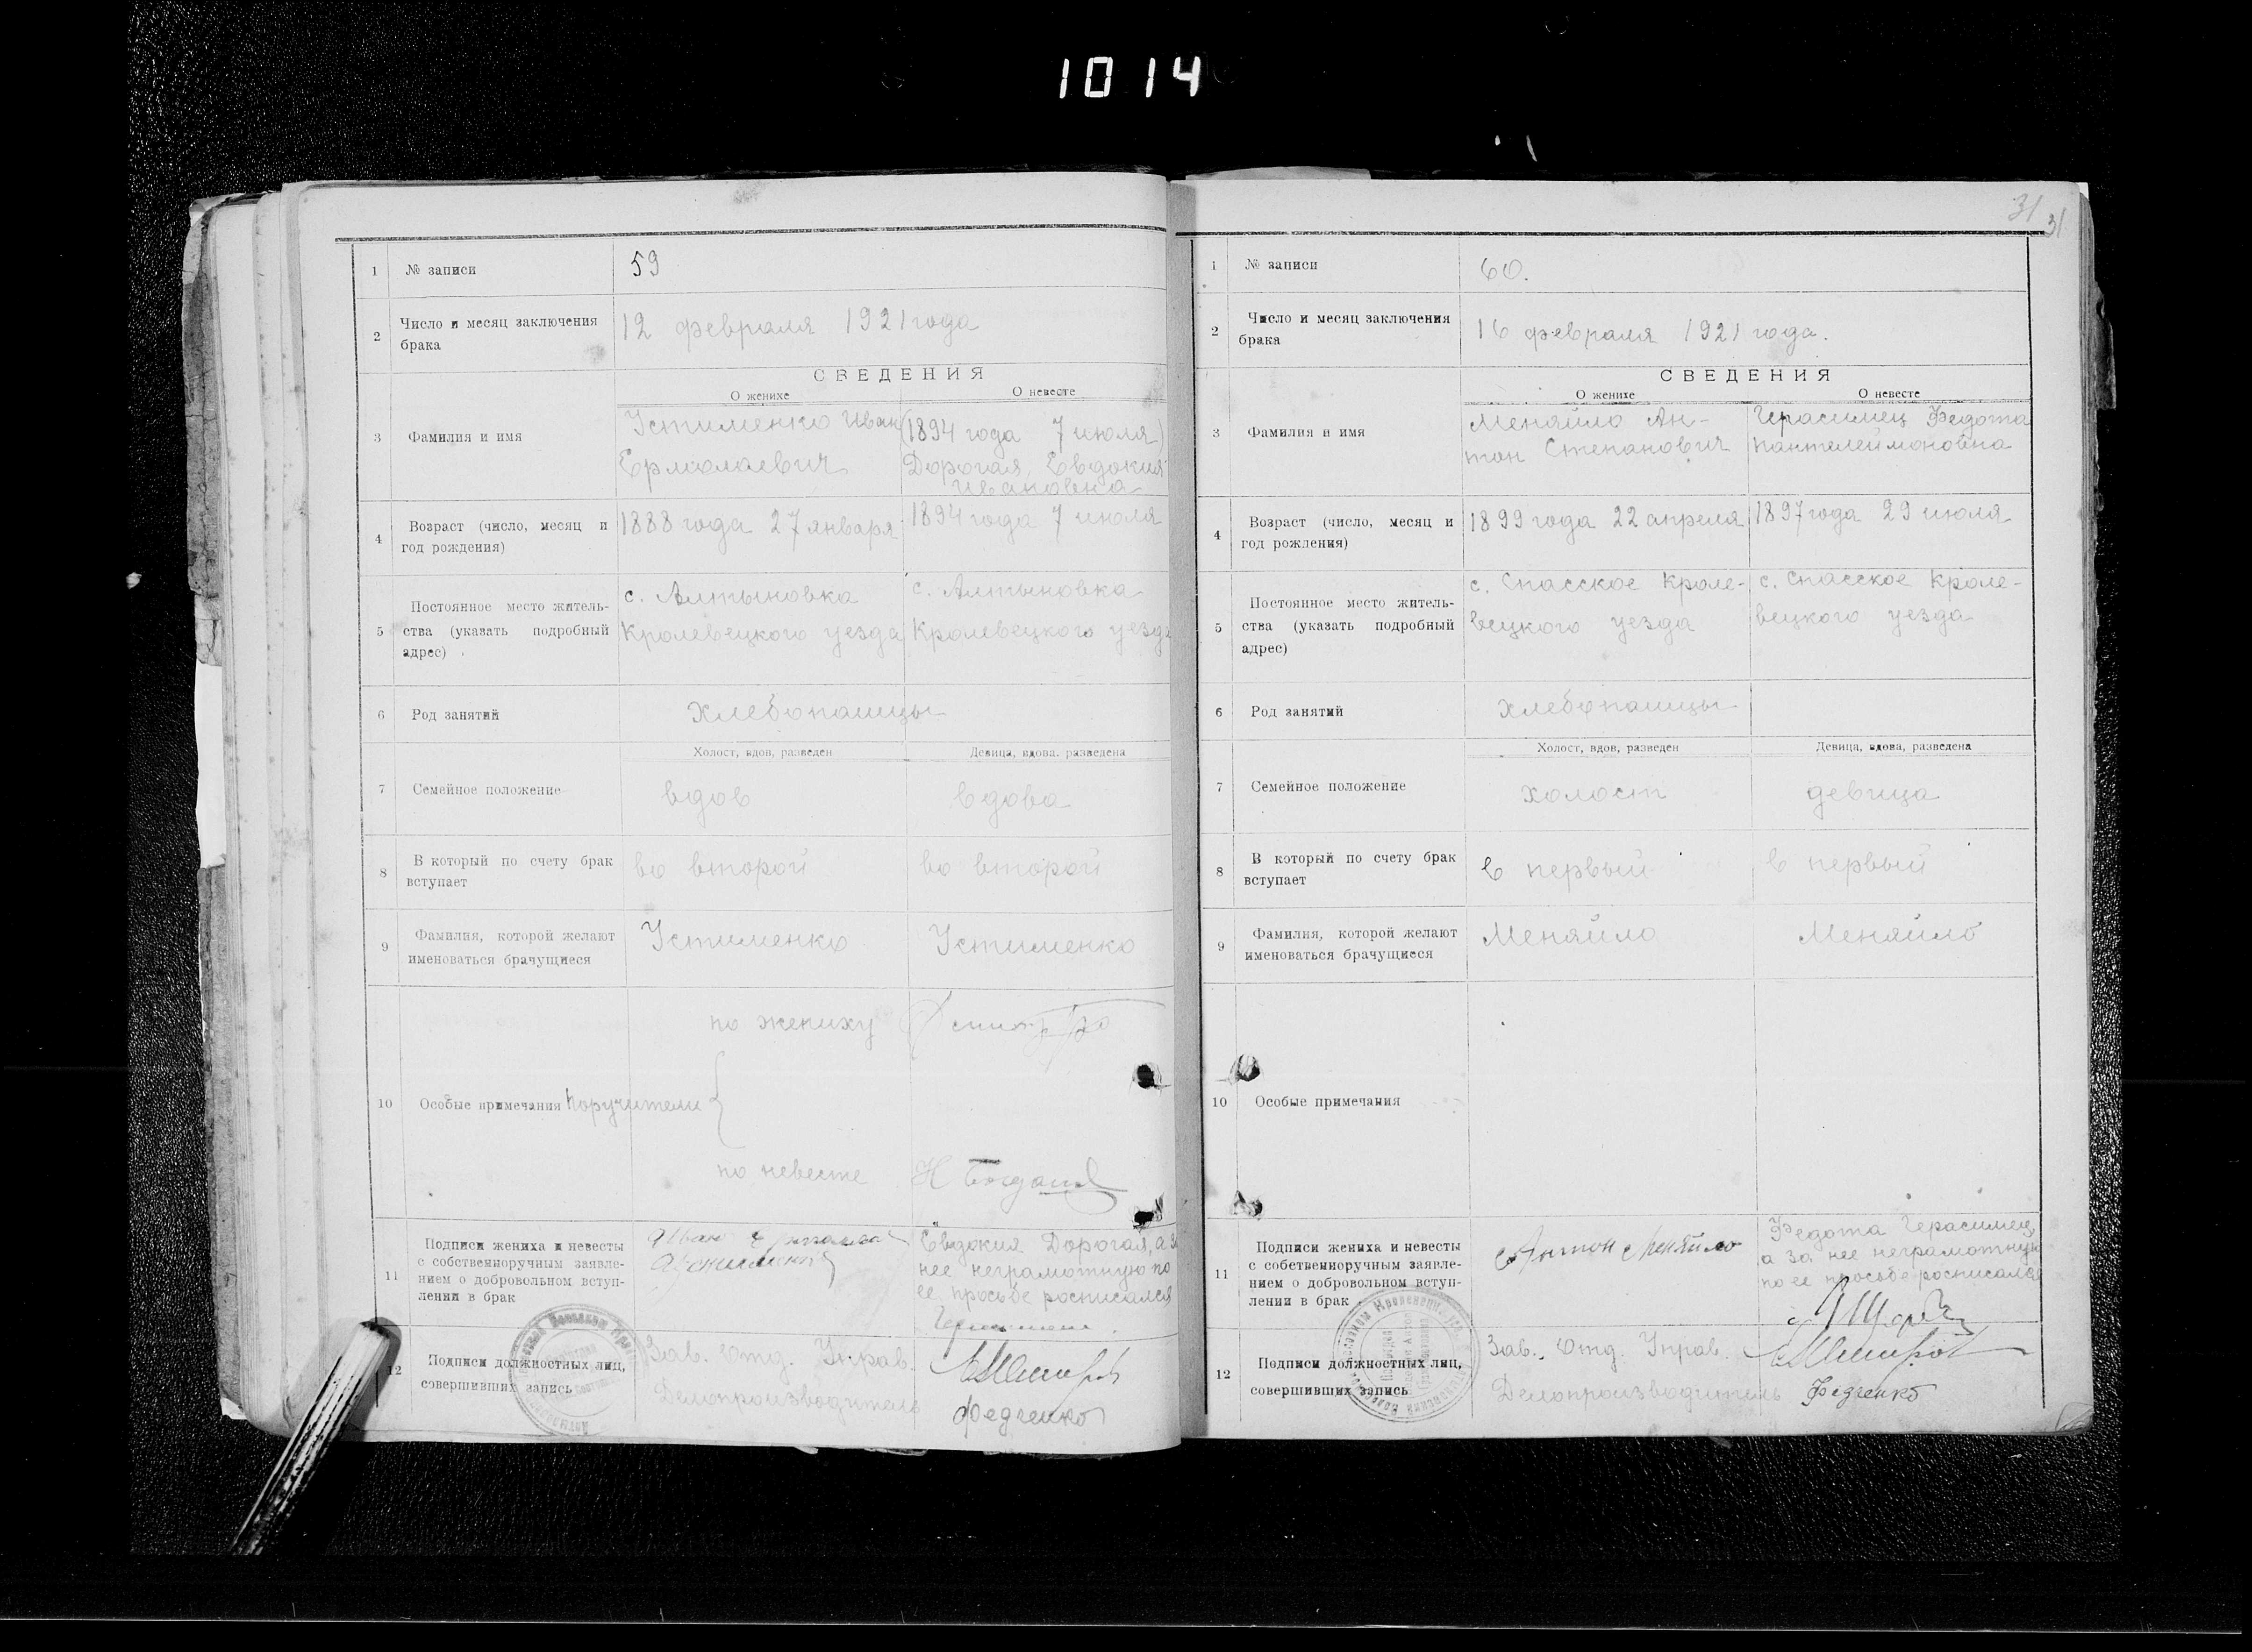 1014
1 № записи 59
2 Число и месяц заключения
брака
12 февраля 1921 года
СВЕДЕНИЯ
О женихе О невесте
3 Фамилия и имя
Устименко Иван
Ермолаевич
(1894 года 7 июля)
Дорогая, Евдокия
Ивановна
4 Возраст (число, месяц и
год рождения)
1888 года 27 января
1894 года 7 июля
5 Постоянное место житель-
ства (указать подробный
адрес)
с. Алтыновка
Кролевецкого уезда
с. Алтыновка
Кролевецкого уезда
6 Род занятий
хлебопашцы
Холост, вдов, разведен Девица, вдова, разведена
7 Семейное положение
вдов вдова
8 В который по счету брак
вступает
во второй во второй
9 Фамилия, которой желают
именоваться брачущиеся
Устименко Устименко
10 Особые примечания Поручители
по жениху
по невесте
11 Подписи жениха и невесты
с собственноручным заявле-
нием о добровольном вступ-
лении в брак
Иван
Евдокия Дорогая, а за
нее неграмотную по
ее просьбе росписался
12 Подписи должностных лиц,
совершивших запись
Зав. Отд. Управ.
Делопроизводитель Федченко
31
31
1 № записи 60.
2 Число и месяц заключения
брака
16 февраля 1921 года.
СВЕДЕНИЯ
О женихе О невесте
3 Фамилия и имя
Меняйло Ан-
тон Степанович
Герасимец Федота
Пантелеймоновна
4 Возраст (число, месяц и
год рождения)
1899 года 22 апреля
1897 года 29 июля
5 Постоянное место житель-
ства (указать подробный
адрес)
с. Спасское Кроле-
вецкого уезда
с. Спасское Кроле-
вецкого уезда
6 Род занятий
хлебопашцы
Холост, вдов, разведен Девица, вдова, разведена
7 Семейное положение
холост девица
8 В который по счету брак
вступает
в первый в первый
9 Фамилия, которой желают
именоваться брачущиеся
Меняйло Меняйло
10 Особые примечания
11 Подписи жениха и невесты
с собственноручным заявле-
нием о добровольном вступ-
лении в брак
Антон Меняйло
Федота Герасимец
а за нее неграмотную
по ее просьбе росписался
12 Подписи должностных лиц,
совершивших запись
Зав. Отд. Управ.
Делопроизводитель Федченко